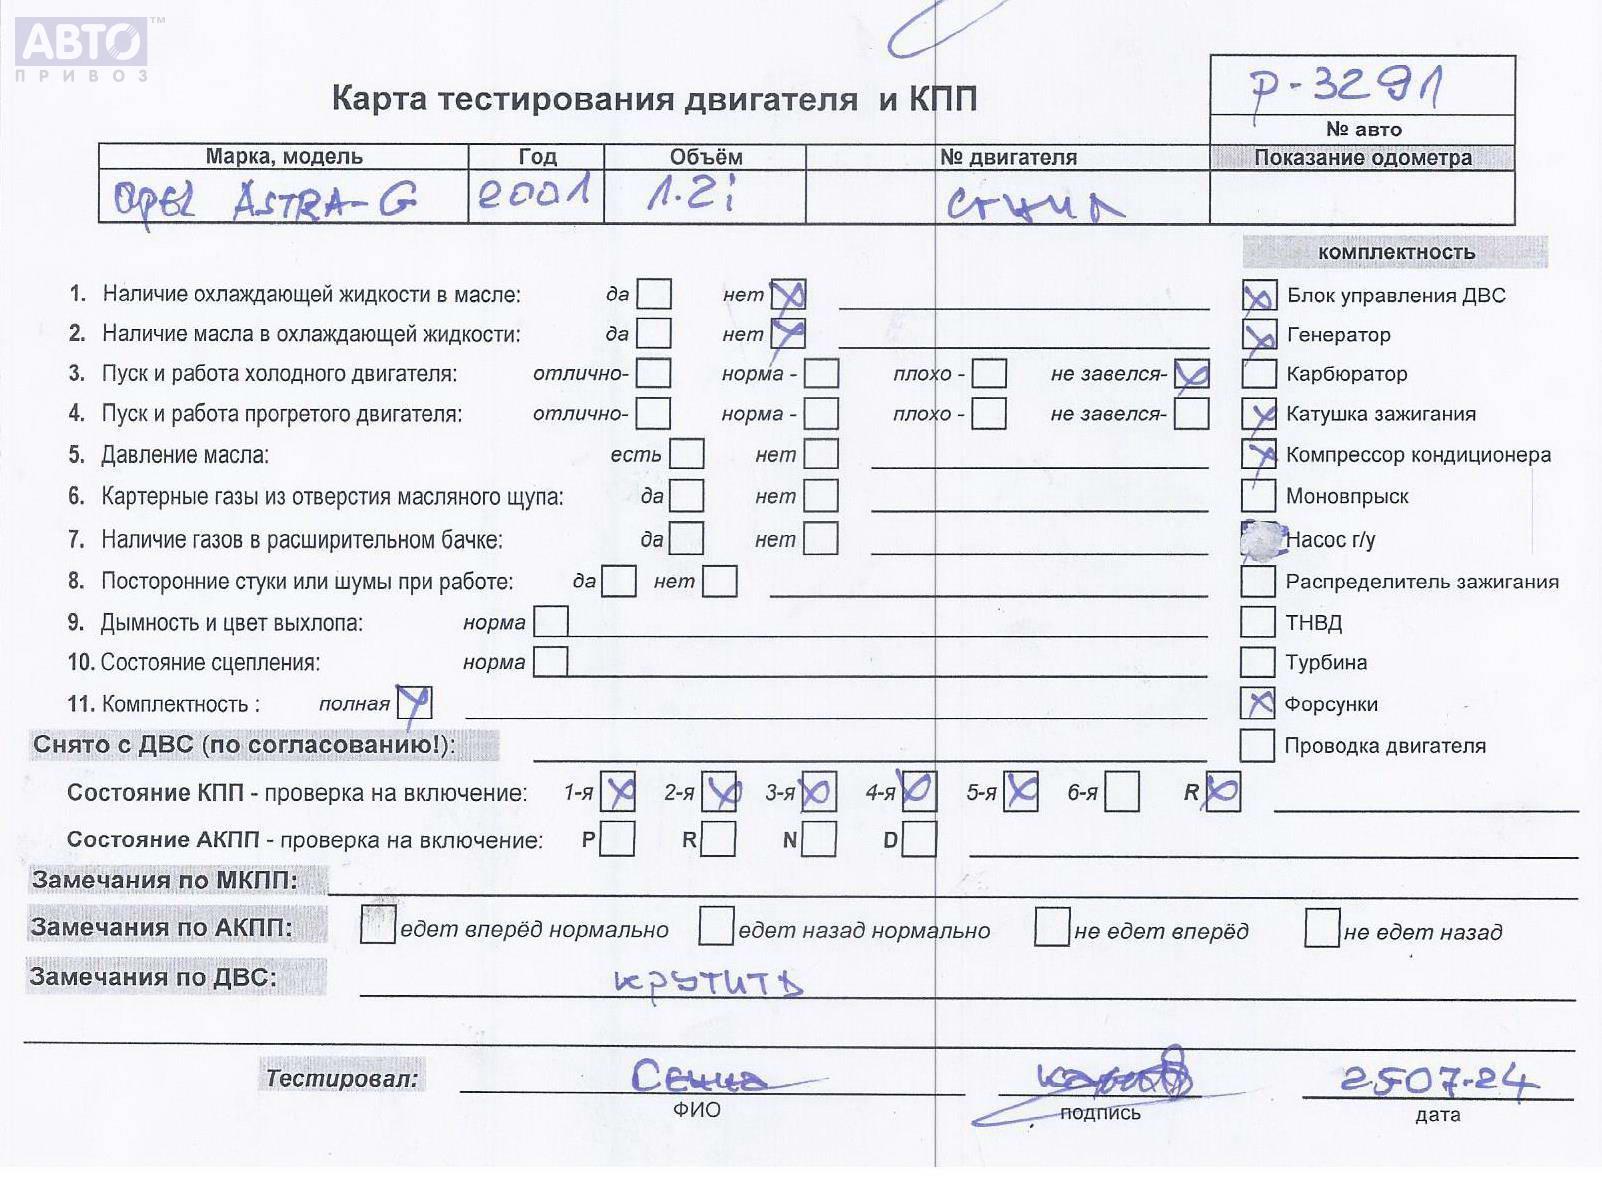 АВТО™
ПРИВОЗ
Карта тестирования двигателя и КПП
р-3291
№ авто
Марка, модель Год Объём № двигателя Показание одометра
Opel ASTRA-G 2001 1.2i
комплектность
1. Наличие охлаждающей жидкости в масле: да нет Блок управления ДВС
2. Наличие масла в охлаждающей жидкости: да нет Генератор
3. Пуск и работа холодного двигателя: отлично- норма - плохо - не завелся- Карбюратор
4. Пуск и работа прогретого двигателя: отлично- норма - плохо - не завелся- Катушка зажигания
5. Давление масла: есть нет Компрессор кондиционера
6. Картерные газы из отверстия масляного щупа: да нет Моновпрыск
7. Наличие газов в расширительном бачке: да нет Насос г/у
8. Посторонние стуки или шумы при работе: да нет Распределитель зажигания
9. Дымность и цвет выхлопа: норма ТНВД
10. Состояние сцепления: норма Турбина
11. Комплектность : полная Форсунки
Снято с ДВС (по согласованию!): Проводка двигателя
Состояние КПП - проверка на включение: 1-я 2-я 3-я 4-я 5-я 6-я R
Состояние АКПП - проверка на включение: P R N D
Замечания по МКПП:
Замечания по АКПП: едет вперёд нормально едет назад нормально не едет вперёд не едет назад
Замечания по ДВС: крутить
Тестировал: 25.07.24
ФИО подпись дата